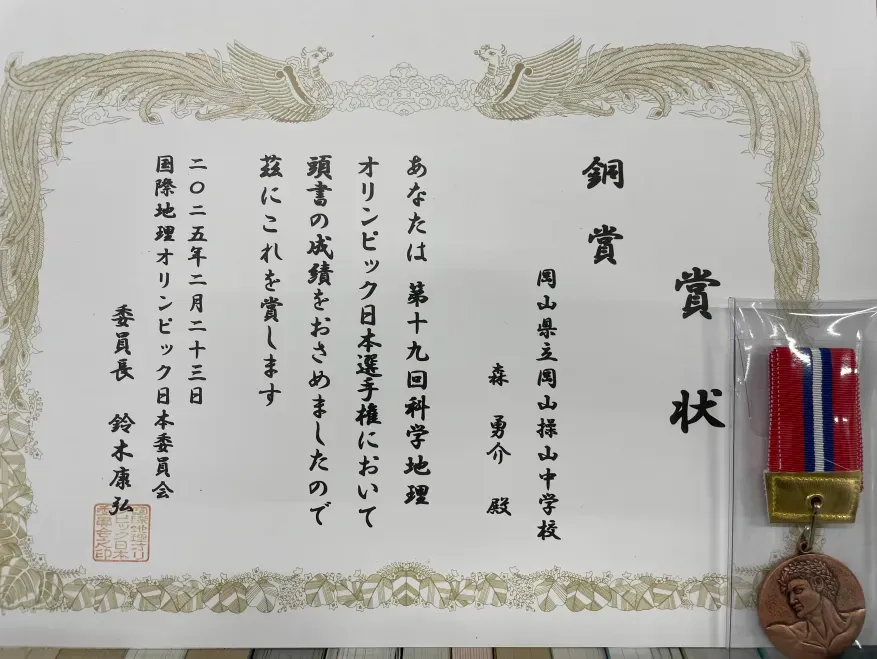 賞状
銅賞
岡山県立岡山操山中学校
森勇介 殿
あなたは 第十九回科学地理
オリンピック日本選手権において
頭書の成績をおさめましたので
茲にこれを賞します
二〇二五年二月二十三日
国際地理オリンピック日本委員会
委員長 鈴木康弘